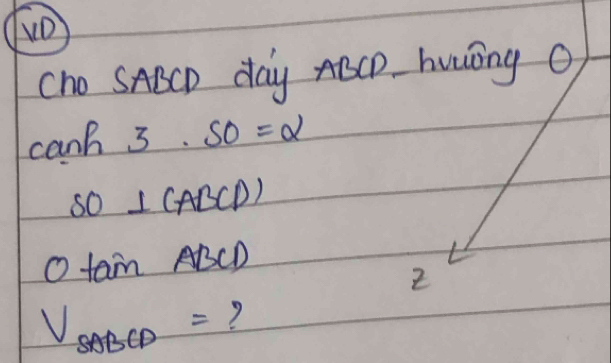 VD
Cho SABCD đáy ABCD hvuông
cạnh 3. SO = 2
SO ⊥ (ABCD)
O tâm ABCD
V SABCD = ?
O
z